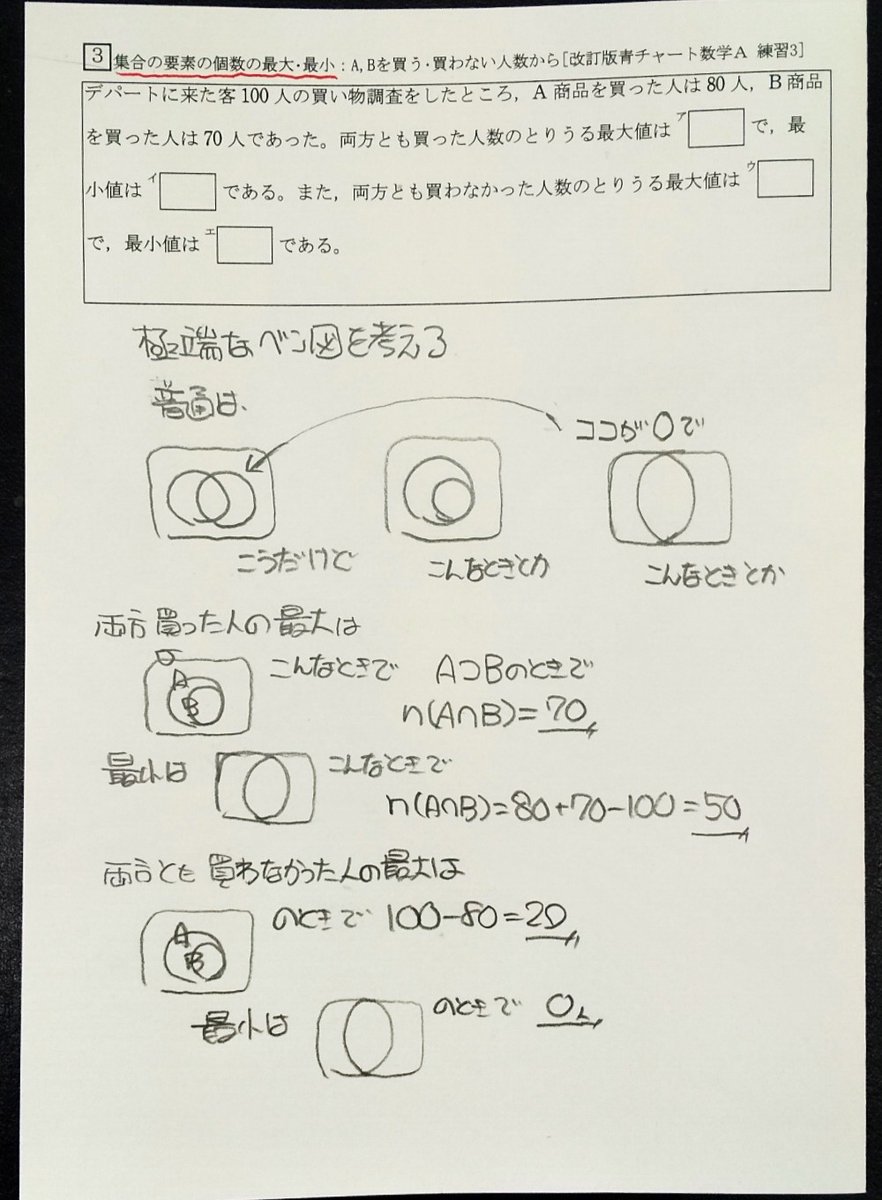 3 集合の要素の個数の最大・最小：A,Bを買う・買わない人数から[改訂版青チャート数学A 練習3]
デパートに来た客100人の買い物調査をしたところ，A商品を買った人は80人，B商品
を買った人は70人であった。両方とも買った人数のとりうる最大値は ア で，最
小値は イ である。また，両方とも買わなかった人数のとりうる最大値は ウ
で，最小値は エ である。
極端なベン図を考える
普通は、
ココが0で
こうだけど
こんなときとか
こんなときとか
両方買った人の最大は
U
A
B
こんなときで A⊃Bのときで
n(A∩B)=70
最小は こんなときで
n(A∩B)=80+70-100=50
両方とも買わなかった人の最大は
A
B
のときで 100-80=20
最小は のときで 0人